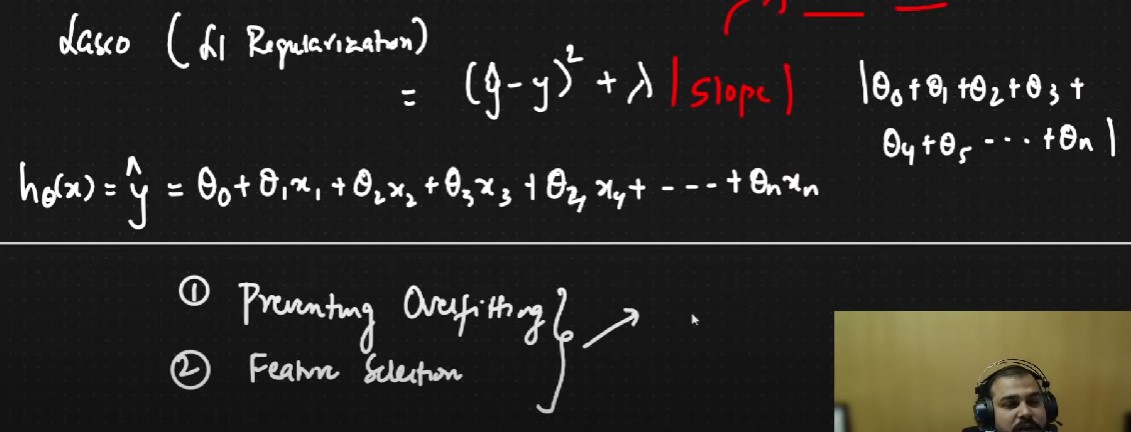 Lasso (L1 Regularization)
= (ŷ-y)² + λ |slope|
|θ₀+θ₁+θ₂+θ₃+
θ₄+θ₅ --- +θₙ|
hθ(x) = ŷ = θ₀ + θ₁x₁ + θ₂x₂ + θ₃x₃ + θ₄x₄ + ---- + θₙxₙ
① Preventing Overfitting
② Feature Selection